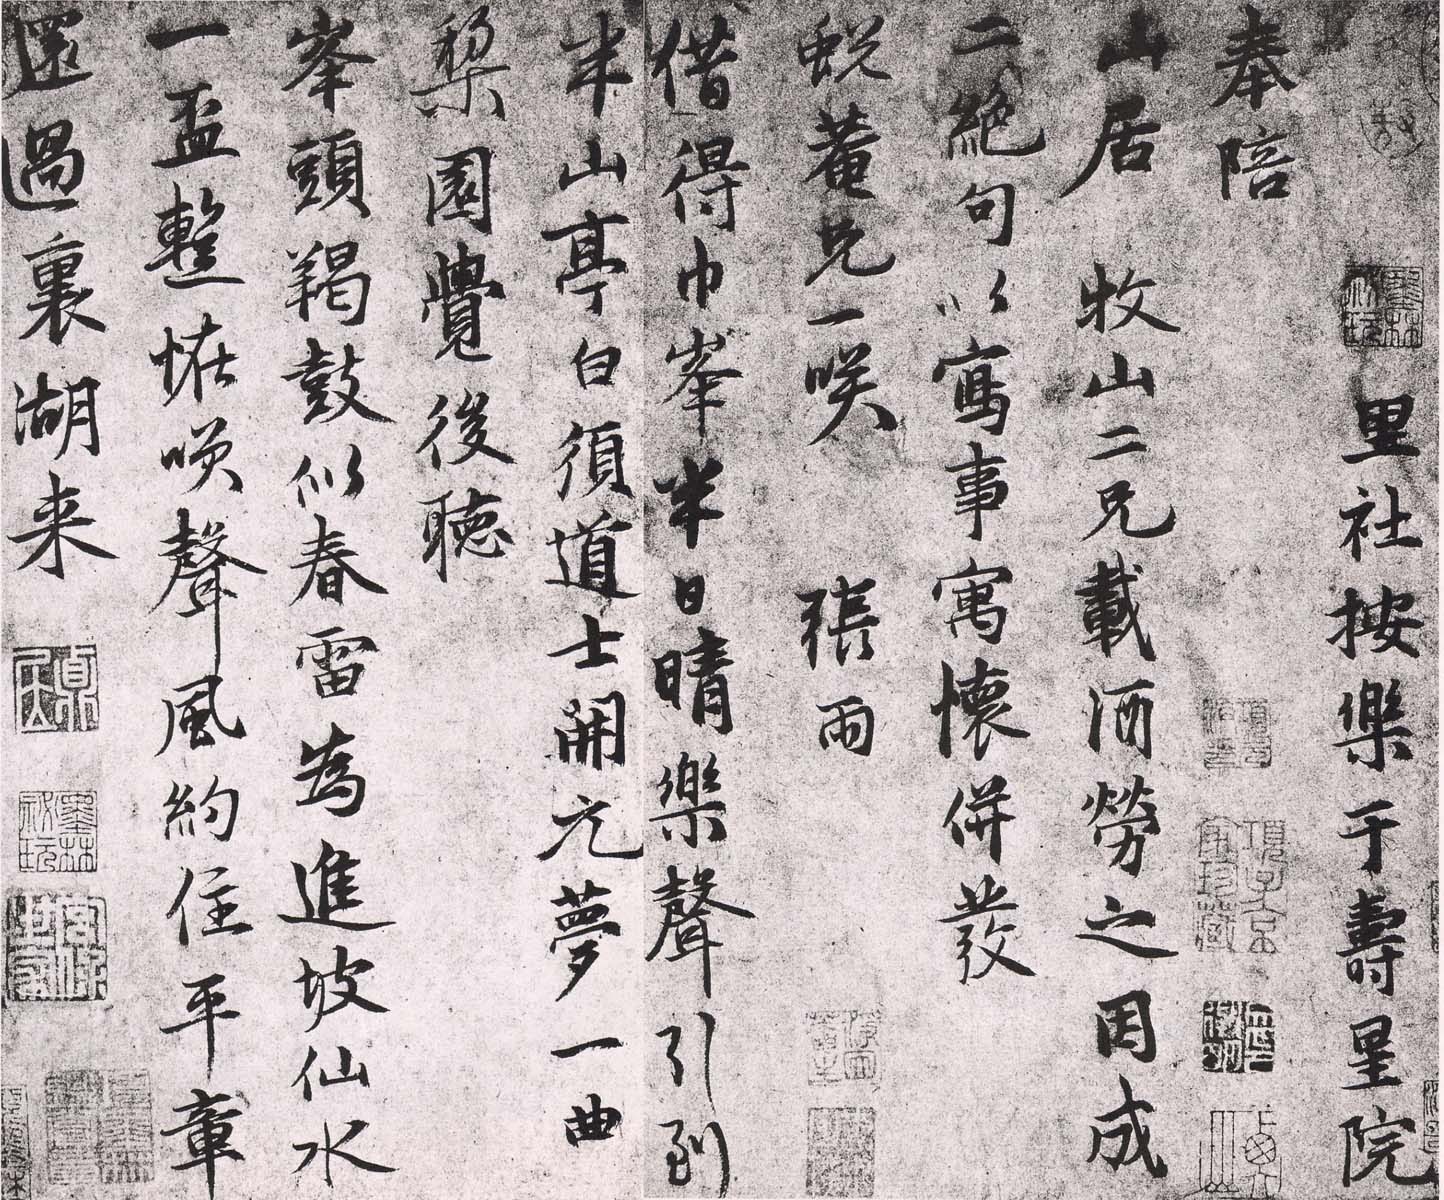 里社按樂于壽星院
奉陪
山居　牧山二兄載酒勞之因成
二絕句以寫事寓懷併發
蛻菴兄一笑　張雨
借得巾峯半日晴樂聲引到
半山亭白須道士開元夢一曲
棃園覺後聽
峯頭羯鼓似春雷為進坡仙水
一盃整恠喚聲風約住平章
還過裏湖来